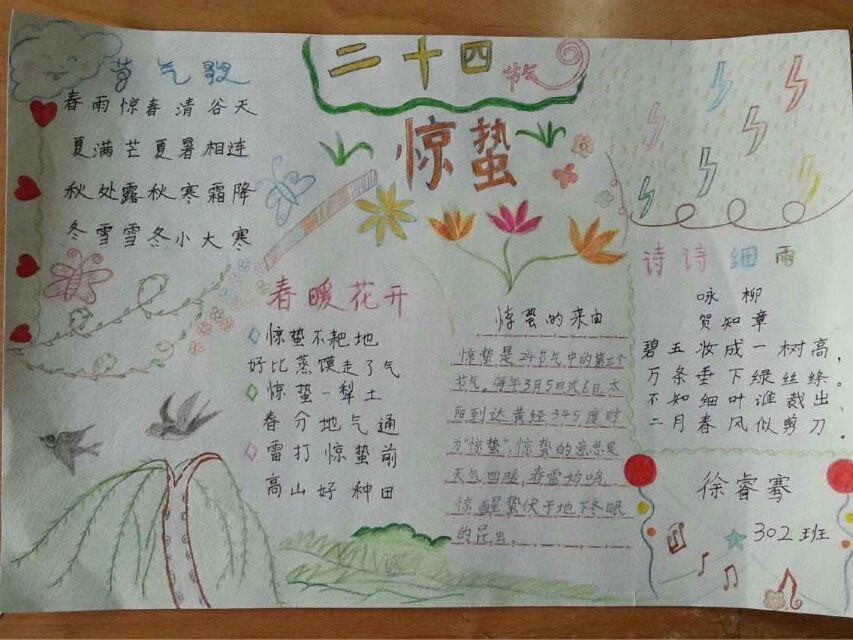 二十四
节气
惊蛰
节气歌
春雨惊春清谷天
夏满芒夏暑相连
秋处露秋寒霜降
冬雪雪冬小大寒
春暖花开
惊蛰不耙地
好比蒸馍走了气
惊蛰一犁土
春分地气通
雷打惊蛰前
高山好种田
惊蛰的来由
惊蛰是24节气中的第三个
节气。每年3月5日或6日,太
阳到达黄经345度时
为"惊蛰"惊蛰的意思是
天气回暖,春雷始鸣
惊醒蛰伏于地下冬眠
的昆虫。
诗诗细雨
咏柳
贺知章
碧玉妆成一树高,
万条垂下绿丝绦。
不知细叶谁裁出,
二月春风似剪刀。
徐睿骞
302班